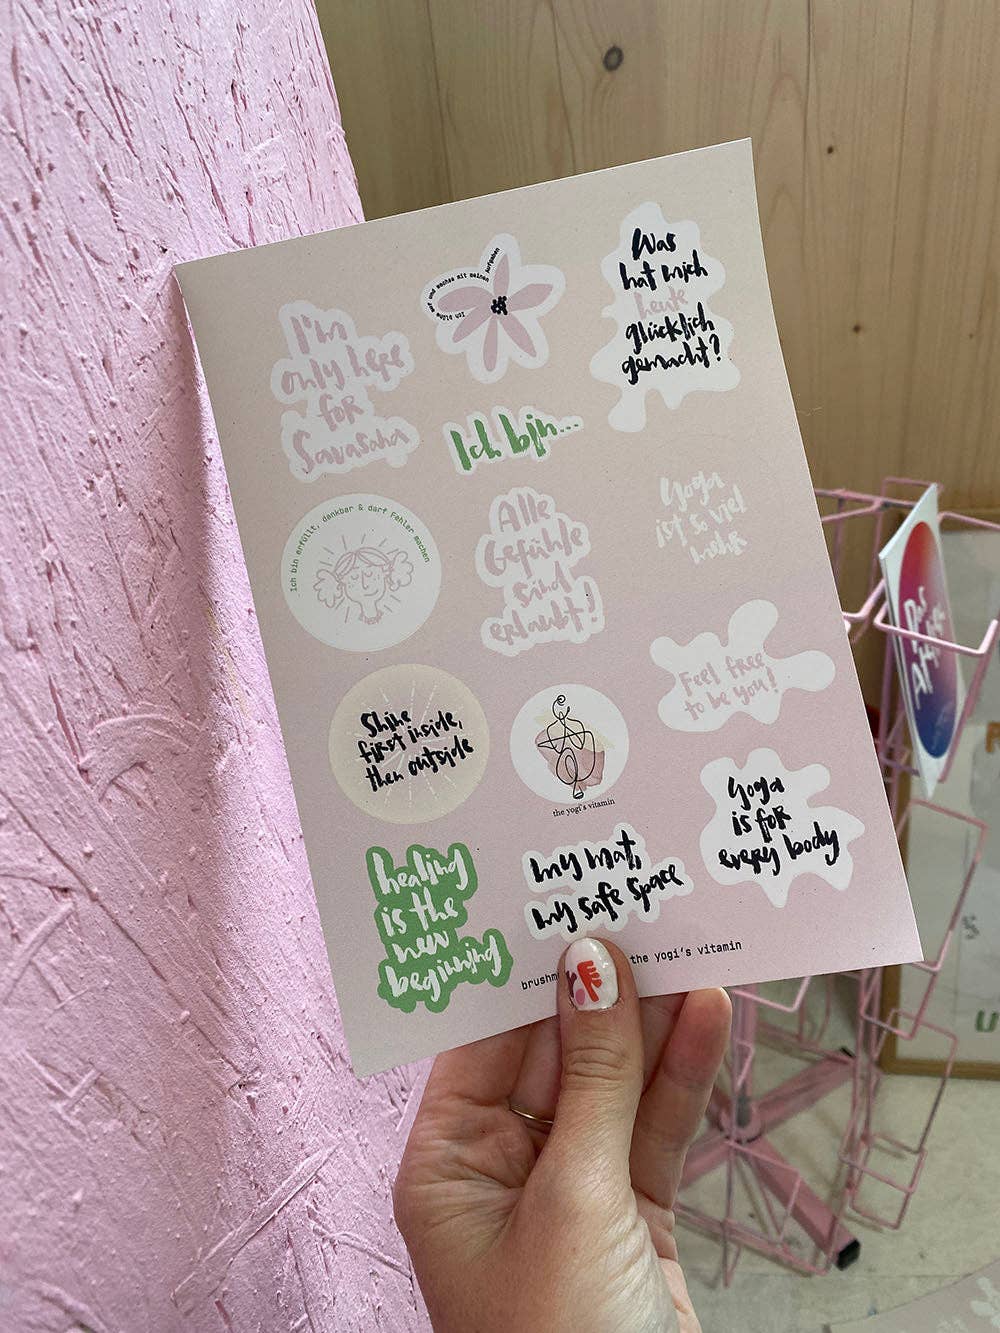 I'm
only here
for
Savasana
Ich blühe auf und wachse mit meinen Aufgaben
Was
hat mich
heute
glücklich
gemacht?
Ich bin...
Ich bin erfüllt, dankbar & darf Fehler machen
Alle
Gefühle
sind
erlaubt!
Yoga
ist so viel
mehr
Feel free
to be you!
Shine
first inside,
then outside
the yogi's vitamin
Yoga
is for
every body
healing
is the
new
beginning
my mat,
my safe space
the yogi's vitamin